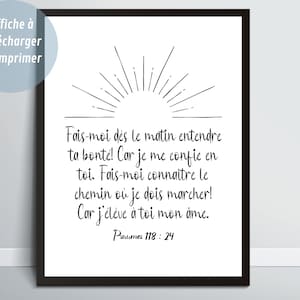 ffiche à
lécharger
mprimer
Fais-moi dès le matin entendre
ta bonté! Car je me confie en
toi. Fais-moi connaître le
chemin où je dois marcher!
Car j'élève à toi mon âme.
Psaumes 118 : 24